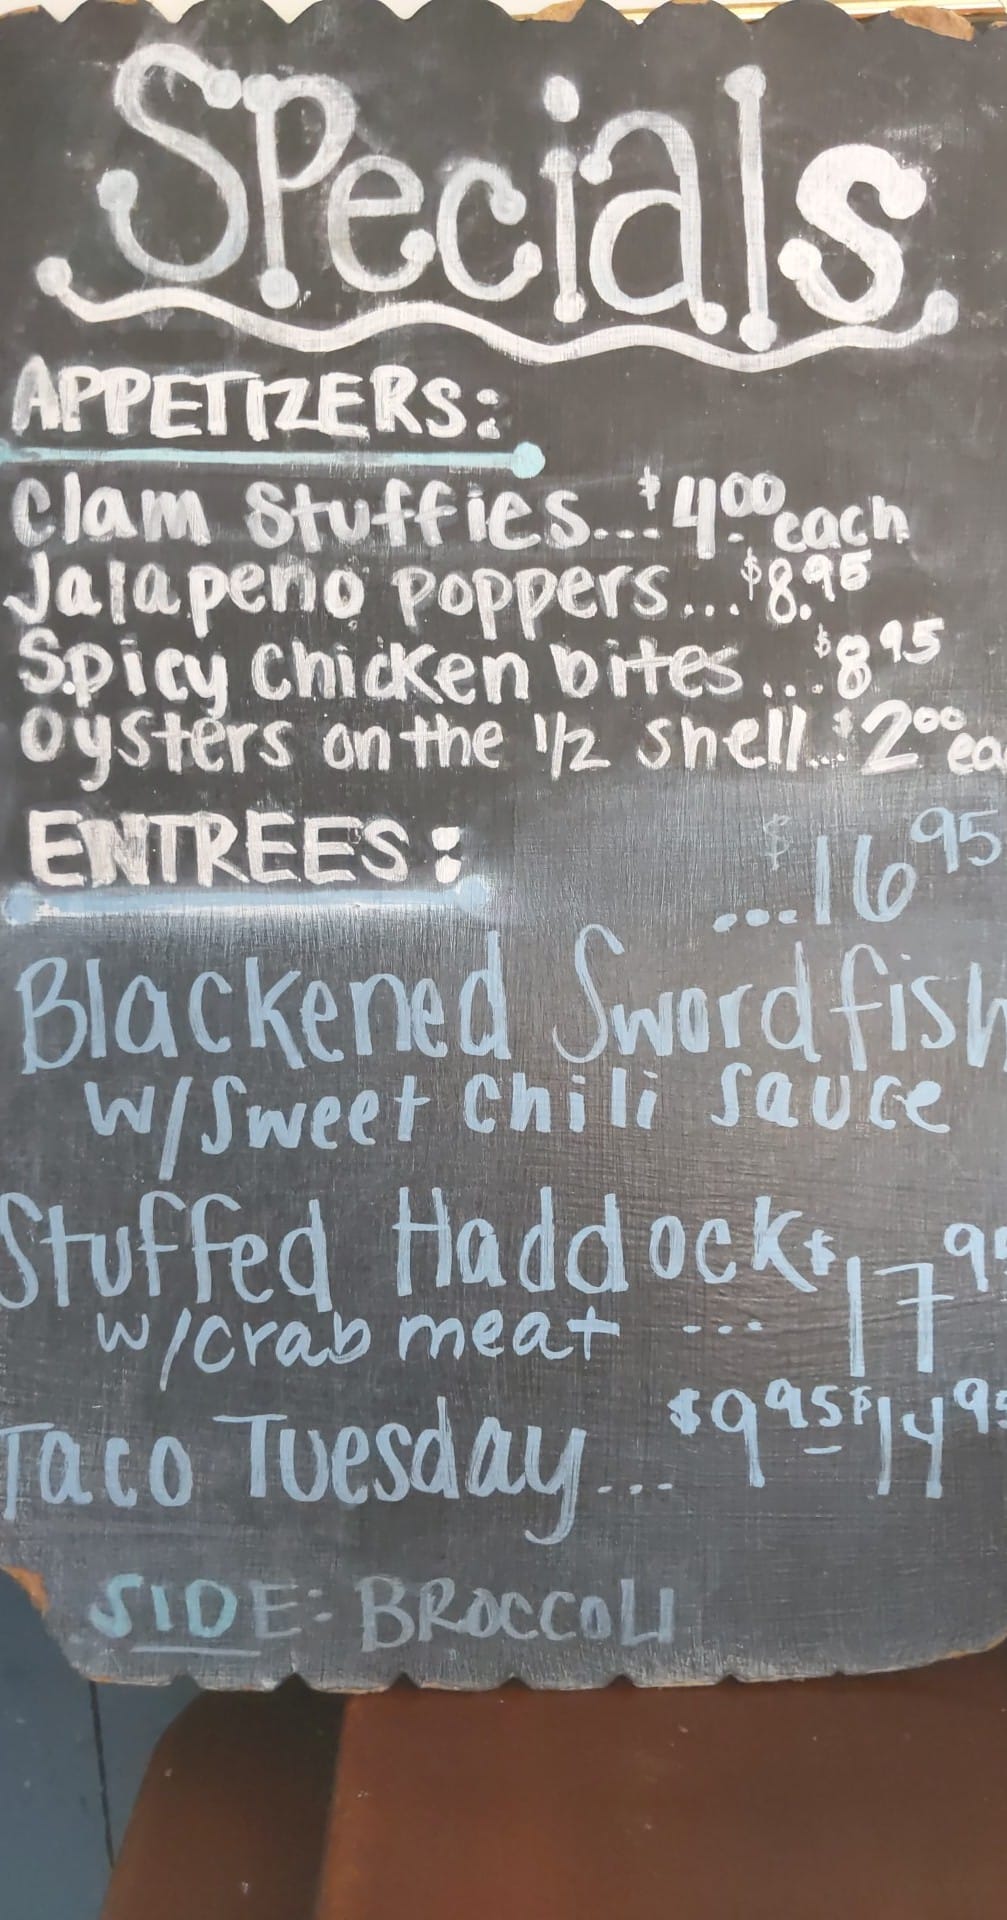 Specials
APPETIZERS:
Clam Stuffies...$4.00 each
Jalapeno poppers...$8.95
Spicy Chicken bites...$8.95
Oysters on the 1/2 shell...$2.00 ea
ENTREES:
...$16.95
Blackened Swordfish
w/Sweet chili sauce
Stuffed Haddock $17.95
w/crab meat ...
Taco Tuesday... $9.95 $14.95
SIDE: BROCCOLI